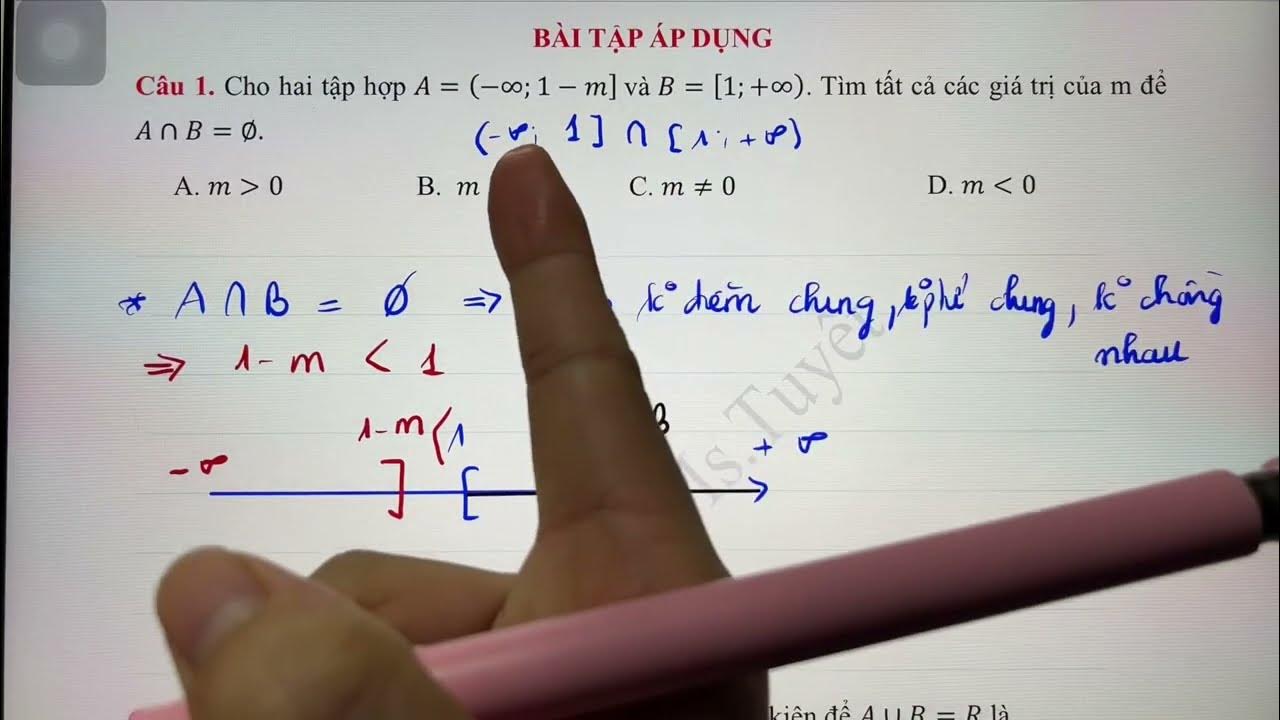 BÀI TẬP ÁP DỤNG
Câu 1. Cho hai tập hợp A = (−∞; 1 − m] và B = [1; +∞). Tìm tất cả các giá trị của m để
A ∩ B = ∅.
(-∞; 1] ∩ [1; +∞)
A. m > 0 B. m C. m ≠ 0 D. m < 0
* A ∩ B = ∅ => k° chung, chung, k°
nhau
=> 1 - m < 1
1-m < 1 B
-∞ + ∞
] [
Ms.Tuyết
kiện để A ∪ B = R là